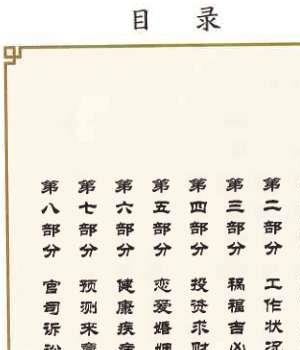 目录
第二部分 工作状况
第三部分 祸福吉凶
第四部分 投资求财
第五部分 恋爱婚姻
第六部分 健康疾病
第七部分 预测来意
第八部分 官司诉讼